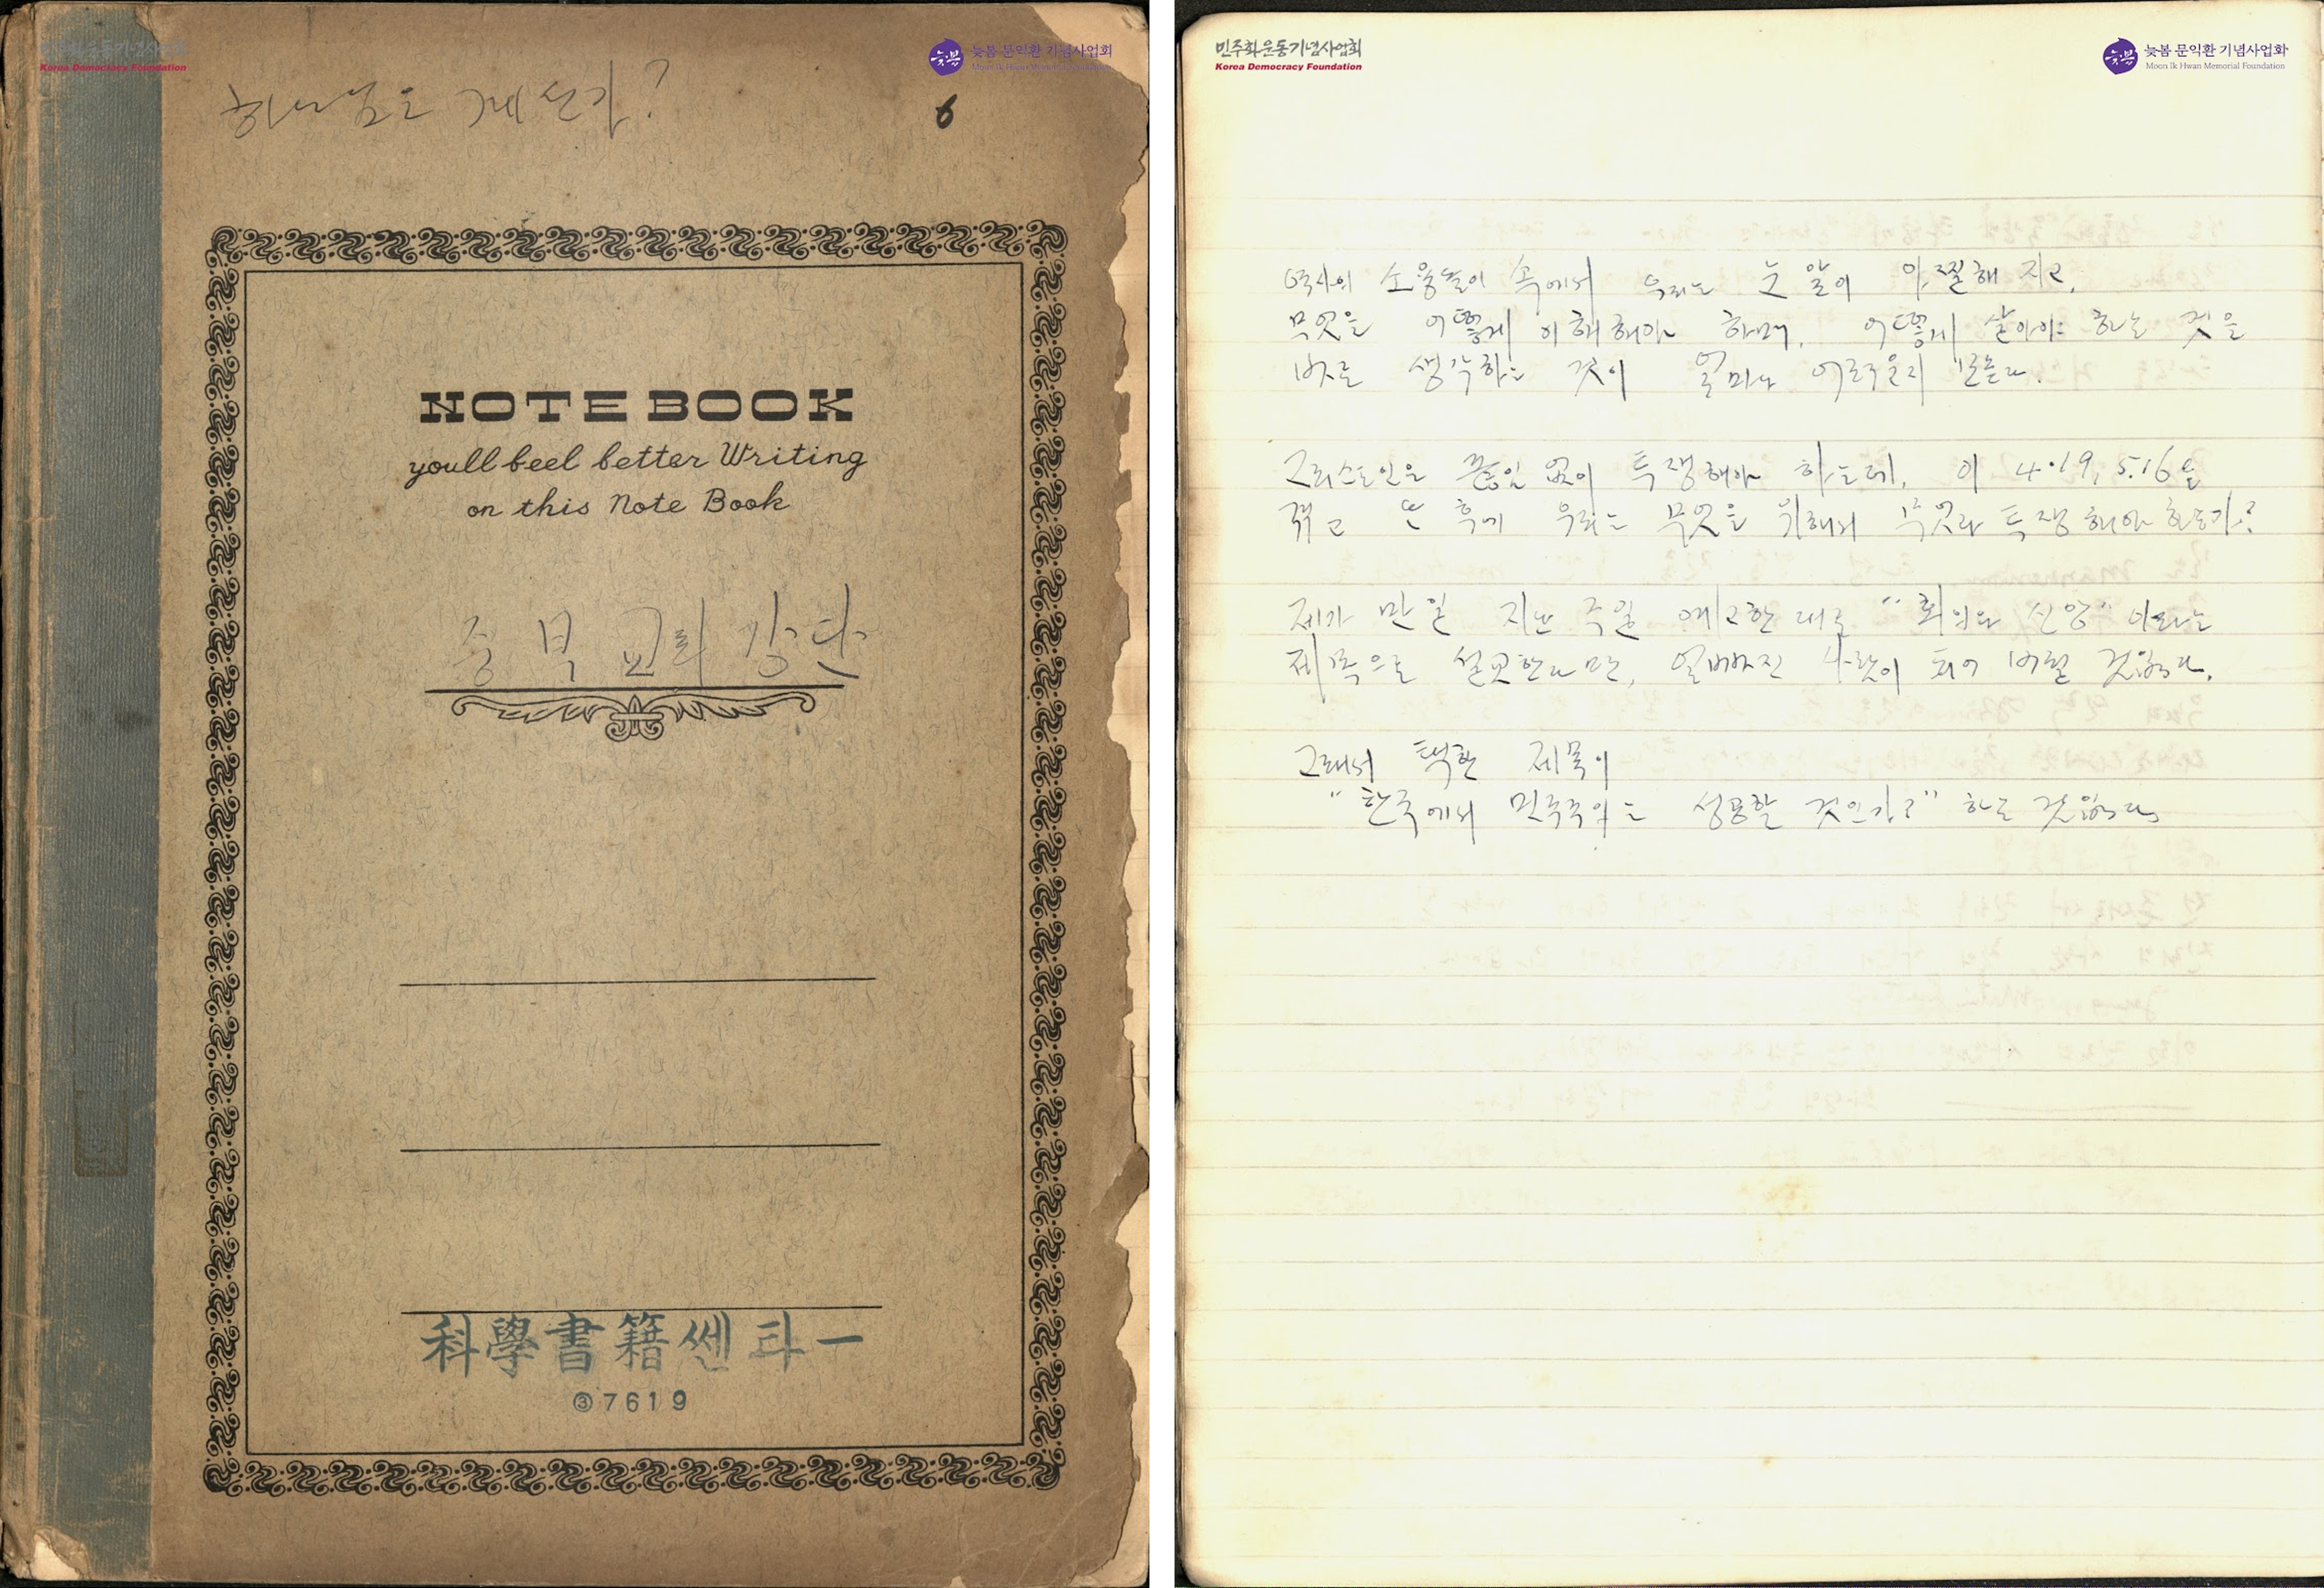 민주화운동기념사업회
Korea Democracy Foundation
늦봄
늦봄 문익환 기념사업회
Moon Ik Hwan Memorial Foundation
하나님은 계신가?
6
NOTEBOOK
you'll feel better Writing
on this Note Book
중부교회 강단
科學書籍쎈타ー
③7619
민주화운동기념사업회
Korea Democracy Foundation
늦봄
늦봄 문익환 기념사업회
Moon Ik Hwan Memorial Foundation
역사의 소용돌이 속에서 우리는 눈 앞이 아찔해 지고,
무엇을 어떻게 이해해야 하며, 어떻게 살아야 하는 것을
바로 생각하는 것이 얼마나 어려운지 모른다.
그리스도인은 끊임 없이 투쟁해야 하는데, 이 4.19, 5.16을
겪고 난 후에 우리는 무엇을 위해서 무엇과 투쟁해야 하는가?
제가 만일 지난 주일 예고한 대로 "회의와 신앙" 이라는
제목으로 설교한다면, 얼빠진 사람이 되어 버릴 것입니다.
그래서 택한 제목이
"한국에서 민주주의는 성공할 것인가?" 하는 것입니다